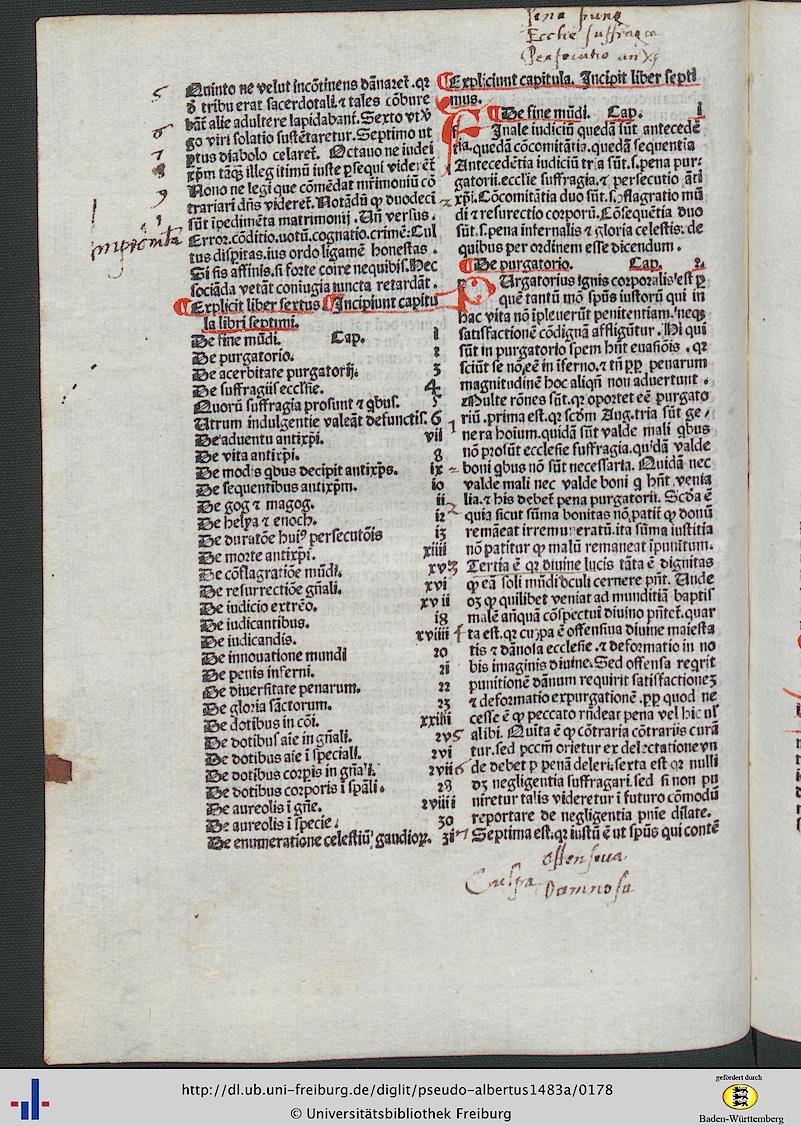 pena purg
Ecclie suffragia
Persecutio anti xp̄i
5
6
7
8
9
impedimēta
Quinto ne velut incōtinens dānaret̄. qꝛ
d̄ tribu erat sacerdotali. ⁊ tales cōbure
bāt̄ alie adultere lapidabant̄. Sexto vt v̄
go viri solatio sustētaretur. Septimo ut
ptus diabolo celaret̄. Octauo ne iudei
xp̄m tāqȝ illegitimū iuste ꝑsequi videret̄
Nono ne legi que cōmēdat mr̄imoniū cō
trariari dn̄s videret̄. Notādū ꝙ duodeci
sūt īpedimēta matrimonij. Un̄ versus.
Error. cōditio. uotū. cognatio. crimē: Cul
tus dispitas. ius ordo ligamē honestas.
Si sis affinis. si forte coire nequibis. Hec
sociāda vetāt coniugia iuncta retardāt.
Explicit liber sextus Incipiunt capitu
la libri septimi.
De fine mūdi. Cap. i
De purgatorio. 2
De acerbitate purgatorij. 3
De suffragiis ecclīse. 4
Quorū suffragia prosunt ⁊ qbus. 5
Utrum indulgentie valeāt defunctis. 6
De aduentu antixp̄i. vii
De vita antixp̄i. 8
De modis qbus decipit antixp̄s. ix
De sequentibus antixp̄m. io
De gog ⁊ magog. ii
De helya ⁊ enoch. i2
De duratōe huiꝰ persecutōis i3
De morte antixp̄i. xiiii
De cōflagratiōe mūdi. xv
De resurrectiōe gn̄ali. xvi
De iudicio extrēo. xvii
De iudicantibus. i8
De iudicandis. xviiii
De innouatione mundi 20
De penis inferni. 2i
De diuersitate penarum. 22
De gloria sāctorum. 23
De dotibus in cōi. xxiiii
De dotibus aīe in gn̄ali. 2v
De dotibus aīe ī speciali. 2vi
De dotibus corpis in gn̄ali. 2vii
De dotibus corporis ī spāli. 28
De aureolis ī gn̄e. 2viiii
De aureolis ī specie. 30
De enumeratione celestiū gaudioꝝ. 3i
Expliciunt capitula. Incipit liber septi
mus.
De fine mūdi. Cap. i
Finale iudiciū quedā sūt antecedē
tia. quedā cōcomitātia. quedā sequentia
Antecedētia iudiciū tria sūt. s. pena pur⸗
gatorii. ecclīe suffragia. ⁊ persecutio āti
xp̄i. Cōcomitātia duo sūt. s. ꝯflagratio mū
di ⁊ resurectio corporū. Cōsequētia duo
sūt. s. pena infernalis ⁊ gloria celestis: de
quibus per ordinem esse dicendum.
De purgatorio. Cap. 2.
Purgatorius ignis corporalis est ꝑ
quē tantū mō spūs iustorū qui in
hac vita nō īpleuerūt penitentiam. neqȝ
satisfactionē cōdignā affligūtur. Hi qui
sūt in purgatorio spem hn̄t euasiōis. qꝛ
sciūt se nō eē in īferno. ⁊ tn̄ ꝓꝑ penarum
magnitudinē hoc aliqn̄ non aduertunt.
Multe rōnes sūt. qꝛ oportet eē purgato
riū. prima est. qꝛ scd̄m Aug. tria sūt ge⸗
nera hoīum. quidā sūt valde mali qbus
nō prosūt ecclesie suffragia. quidā valde
boni qbus nō sūt necessaria. Quidā nec
valde mali nec valde boni q hn̄t venia
lia. ⁊ his debet̄ pena purgatorii. Scd̄a ē
quia sicut sūma bonitas nō patit̄ ꝙ bonū
remāeat irremuneratū. ita sūma iustitia
nō patitur ꝙ malū remaneat īpunitum.
Tertia ē qꝛ diuine lucis tāta ē dignitas
ꝙ eā soli mūdi oculi cernere pn̄t. Unde
oȝ ꝙ quilibet veniat ad munditiā baptis
malē an̄quā cōspectui diuino pn̄tet̄. quar
ta est. qꝛ culpa ē offensiua diuine maiesta
tis ⁊ dānosa ecclesie. ⁊ deformatio in no
bis imaginis diuine. Sed offensa reqrit
punitionē dānum requirit satisfactioneȝ
⁊ deformatio expurgationē. ꝓꝑ quod ne
cesse ē ꝙ peccato rn̄dear pena vel hic ul̄
alibi. Quīta ē ꝙ cōtraria cōtrariis curā
tur. sed pcc̄m orietur ex delectatione vn
de debet ꝑ penā deleri. sexta est qꝛ nulli
dȝ negligentia suffragari. sed si non pu
niretur talis videretur ī futuro cōmodū
reportare de negligentia pn̄ie dilate.
Septima est. qꝛ iustū ē ut spūs qui contē
offensiua
Culpa Damnosa
http://dl.ub.uni-freiburg.de/diglit/pseudo-albertus1483a/0178
© Universitätsbibliothek Freiburg
gefördert durch
Baden-Württemberg